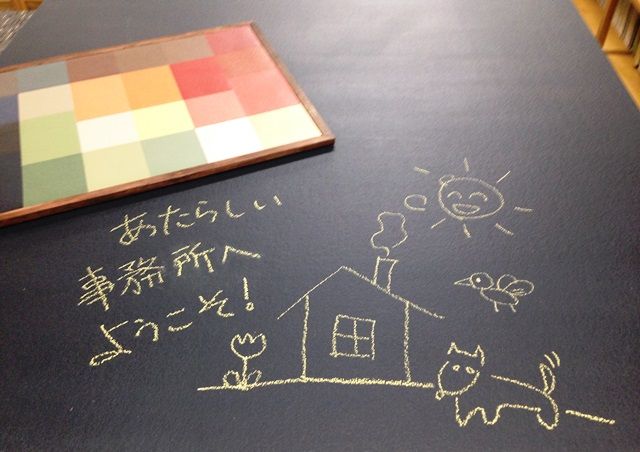 あたらしい
事務所へ
ようこそ!